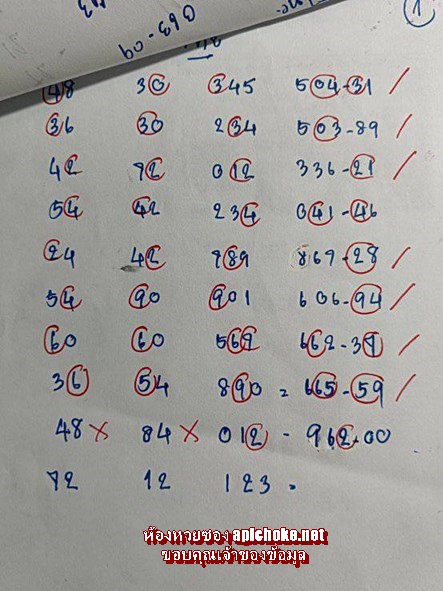 1
063-09
48 30 345 504-31 /
36 30 234 503-89 /
42 72 012 336-21 /
54 42 234 041-46
24 42 789 869-28 /
54 90 901 606-94 /
60 60 567 662-37 /
36 54 890 = 665-59 /
48 × 84 × 012 - 962-00
72 12 123 =
ห้องหวยซอง apichoke.net
ขอบคุณเจ้าของข้อมูล